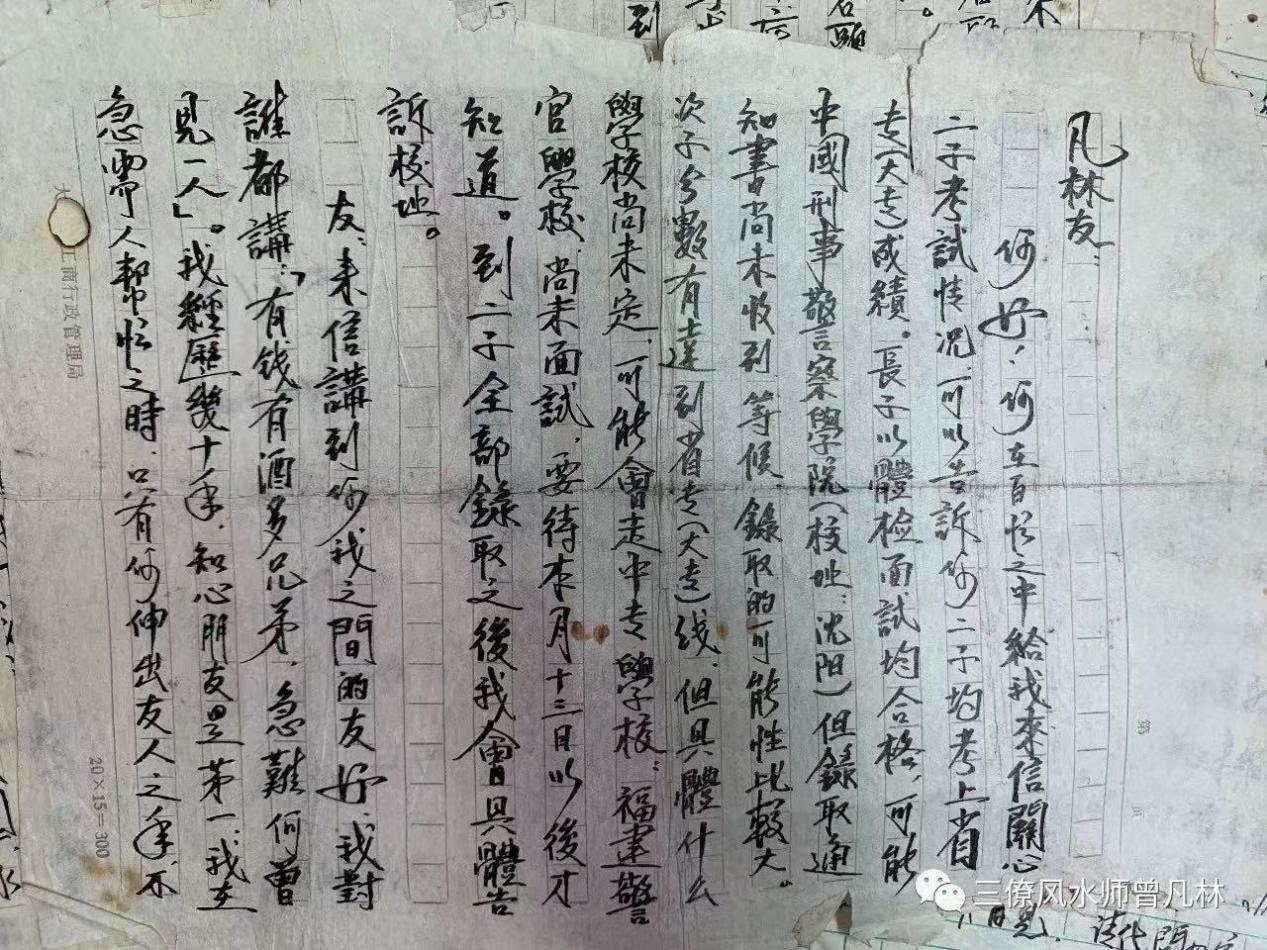 凡林友：
你好！你在百忙之中給我來信關心
二子考試情况，可以告訴你，二子均考上省
专（大专）成績。長子以體检面試均合格，可能
中國刑事警察學院（校址：沈阳）但錄取通
知書尚未收到，等候。錄取的可能性比較大。
次子分數有達到省专（大专）线，但具體什么
學校尚未定，可能會走中专學校：福建警
官學校，尚未面試，要待本月十三日以後才
知道。到二子全部錄取之後我會具體告
訴校址。
友：来信講到你我之間的友好，我對
誰都講：「有钱有酒多兄弟，急難何曾
見一人」。我經歷幾十年，知心朋友是第一，我在
急需人帮忙之時，只有你伸出友人之手，不
工商行政管理局
20×15=300
第
三僚风水师曾凡林